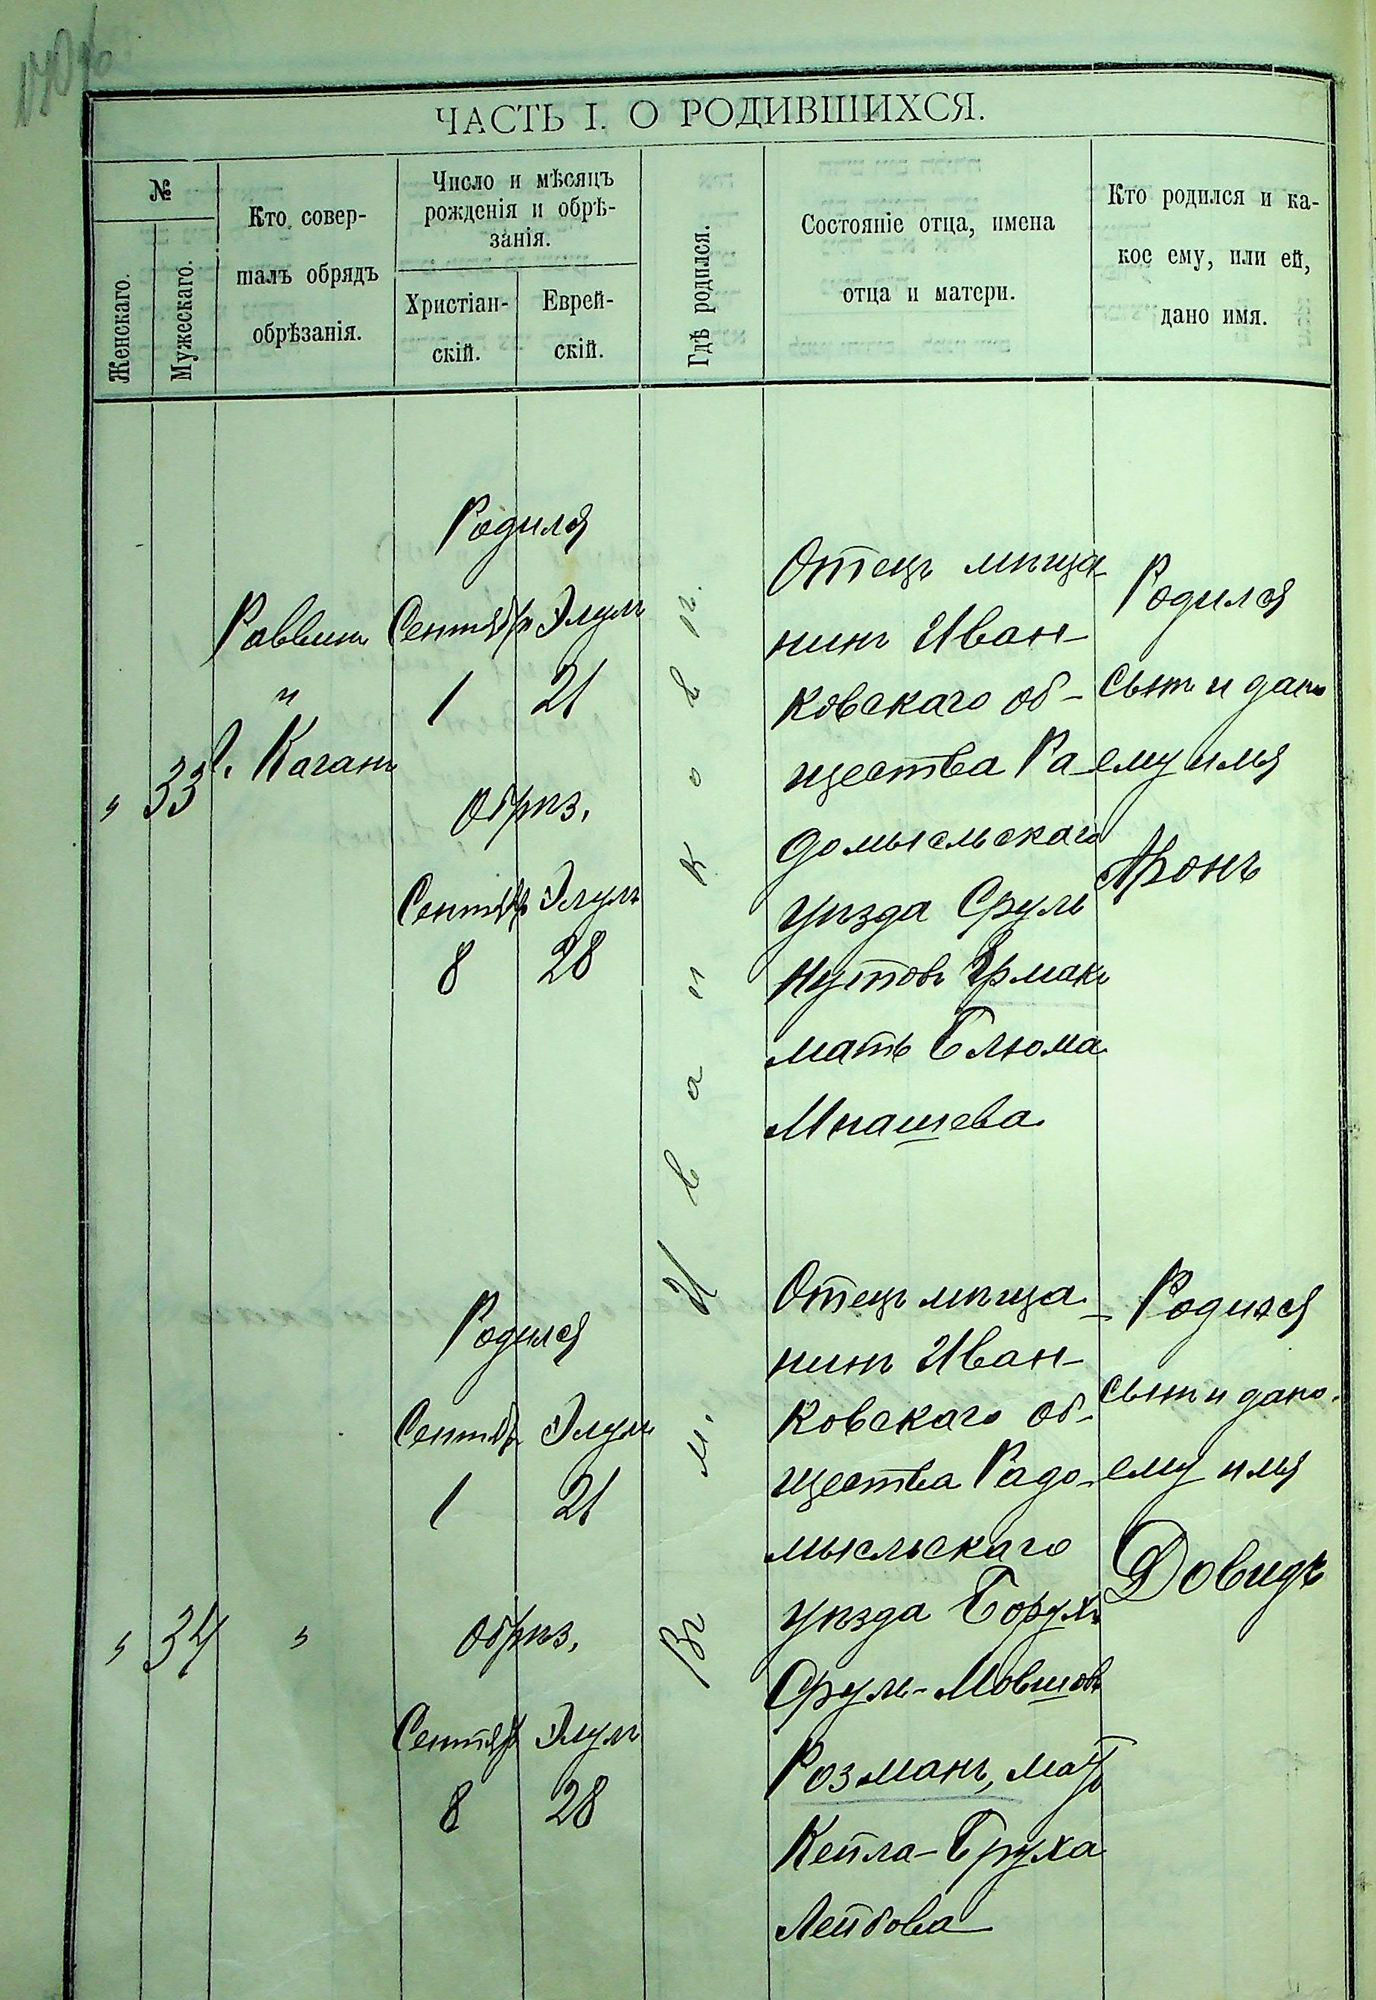 ЧАСТЬ I. О РОДИВШИХСЯ.
№
Женскаго.
Мужескаго.
Кто совер-
шалъ обрядъ
обрѣзанія.
Число и мѣсяцъ
рожденія и обрѣ-
занія.
Христіан-
скій.
Еврей-
скій.
Гдѣ родился.
Состояніе отца, имена
отца и матери.
Кто родился и ка-
кое ему, или ей,
дано имя.
"
33
Раввинъ
"
Каганъ
Родился
Сентябр Элулъ
1 21
Обрѣз.
Сентябр Элулъ
8 28
Въ м. Иванковѣ.
Отецъ мѣща-
нинъ Иван-
ковскаго об-
щества Ра-
домысльскаго
уѣзда Сруль
Нутовъ Ермакъ
мать Блюма
Мнашева
Родился
сынъ и дано
ему имя
Аронъ
"
34
"
Родился
Сентябр Элулъ
1 21
Обрѣз.
Сентябр Элулъ
8 28
Отецъ мѣща-
нинъ Иван-
ковскаго об-
щества Радо-
мысльскаго
уѣзда Борухъ
Сруль-Мовшовъ
Розманъ, мать
Кейла-Бруха
Лейбова
Родился
сынъ и дано
ему имя
Довидъ